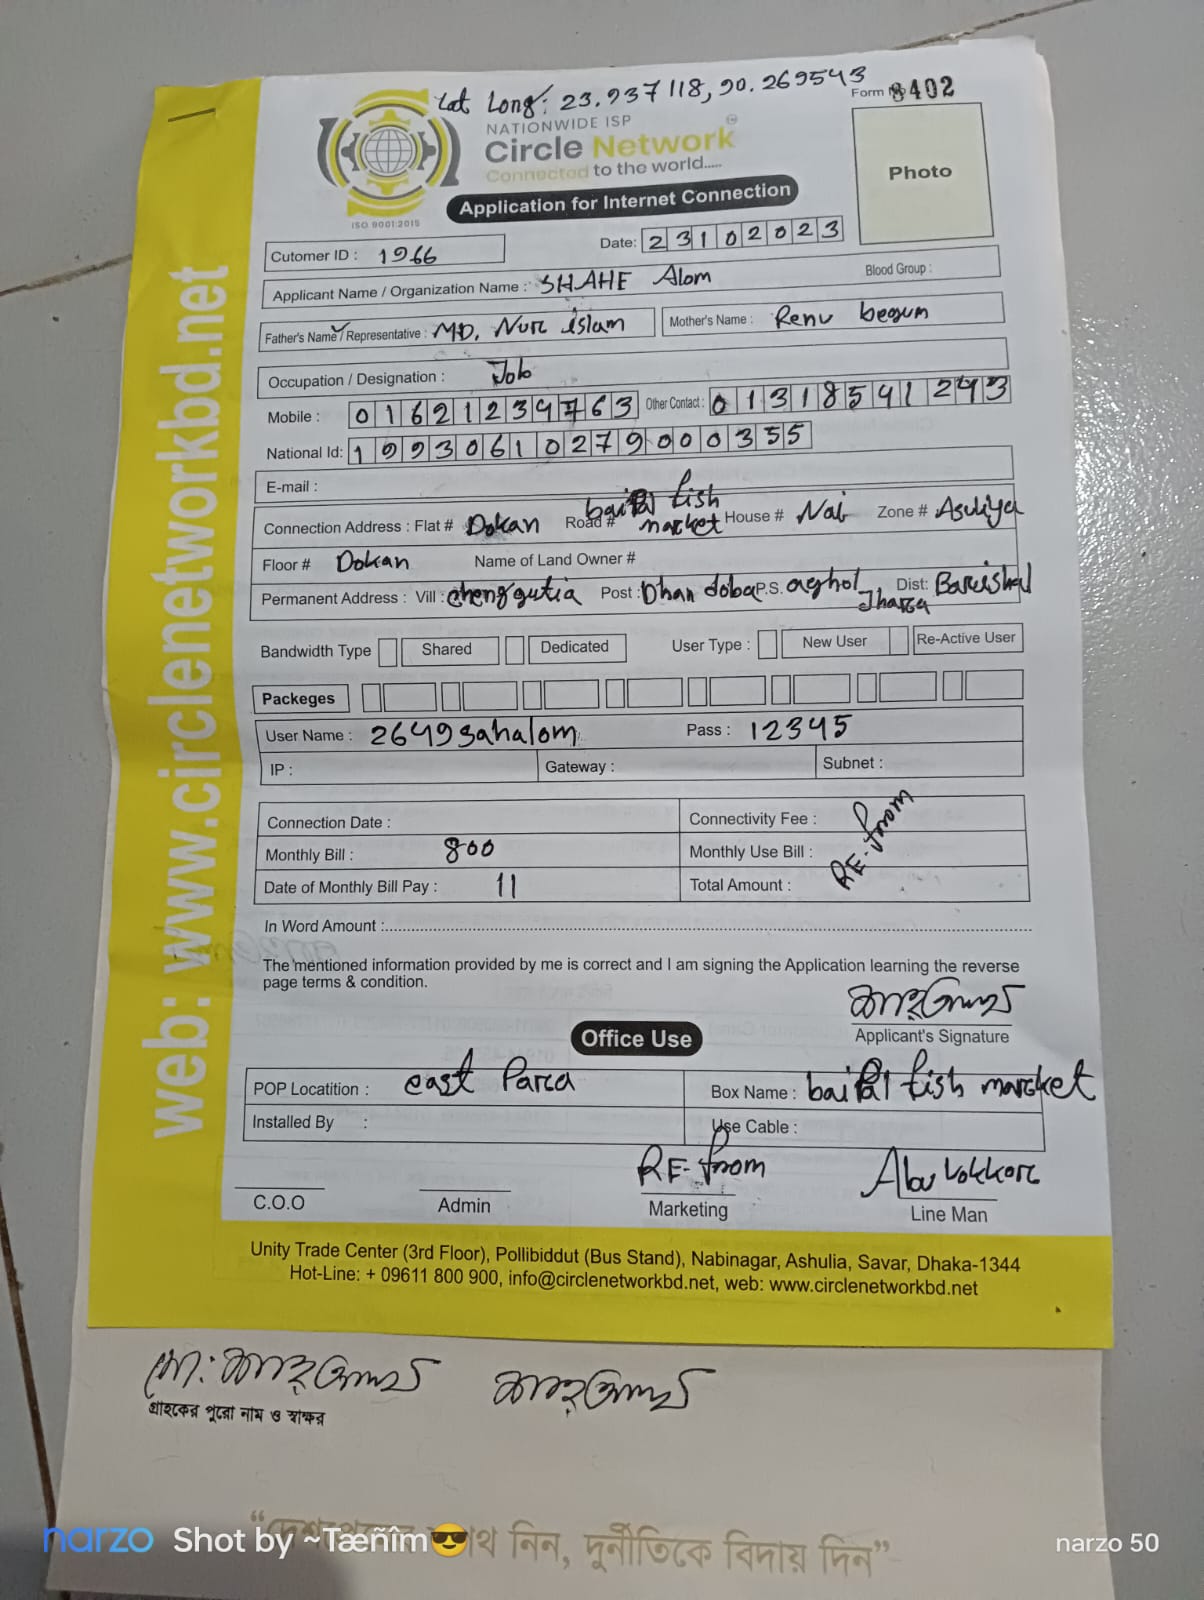 Lat Long: 23.937118, 90.269543
Form No 8402
NATIONWIDE ISP
Circle Network
Connected to the world.....
ISO 9001:2015
Application for Internet Connection
Photo
Cutomer ID : 1966
Date: 23102023
Applicant Name / Organization Name : SHAHE Alom
Blood Group :
Father's Name / Representative : MD. Nurc islam
Mother's Name : Renu begum
Occupation / Designation : Job
Mobile : 01621234763 Other Contact : 01318541243
National Id: 19930610279000355
E-mail :
Connection Address : Flat # Dokan Road # baipal fish market House # Nai Zone # Asuliya
Floor # Dokan Name of Land Owner #
Permanent Address : Vill : chenggutia Post : Dhan doba P.S. aghol Jharca Dist: Barcishal
Bandwidth Type Shared Dedicated User Type : New User Re-Active User
Packeges
User Name : 2649sahalom Pass : 12345
IP : Gateway : Subnet :
Connection Date : Connectivity Fee :
Monthly Bill : 800 Monthly Use Bill :
Date of Monthly Bill Pay : 11 Total Amount :
RE-from
In Word Amount :
The mentioned information provided by me is correct and I am signing the Application learning the reverse
page terms & condition.
শাহ্আলম
Applicant's Signature
Office Use
POP Locatition : east Parca Box Name : baipal fish marcket
Installed By : Use Cable :
RE-from Abu bokkorc
C.O.O Admin Marketing Line Man
Unity Trade Center (3rd Floor), Pollibiddut (Bus Stand), Nabinagar, Ashulia, Savar, Dhaka-1344
Hot-Line: + 09611 800 900, info@circlenetworkbd.net, web: www.circlenetworkbd.net
web: www.circlenetworkbd.net
মো: শাহ্আলম শাহ্আলম
গ্রাহকের পুরো নাম ও স্বাক্ষর
নিন, দুর্নীতিকে বিদায় দিন”
narzo Shot by ~Tæñîm😎 narzo 50